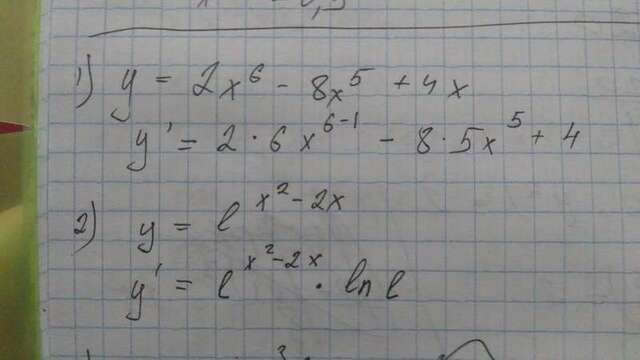 1) y = 2x⁶ - 8x⁵ + 4x
y' = 2 · 6x⁶⁻¹ - 8 · 5x⁵ + 4
2) y = e^(x²-2x)
y' = e^(x²-2x) · ln e